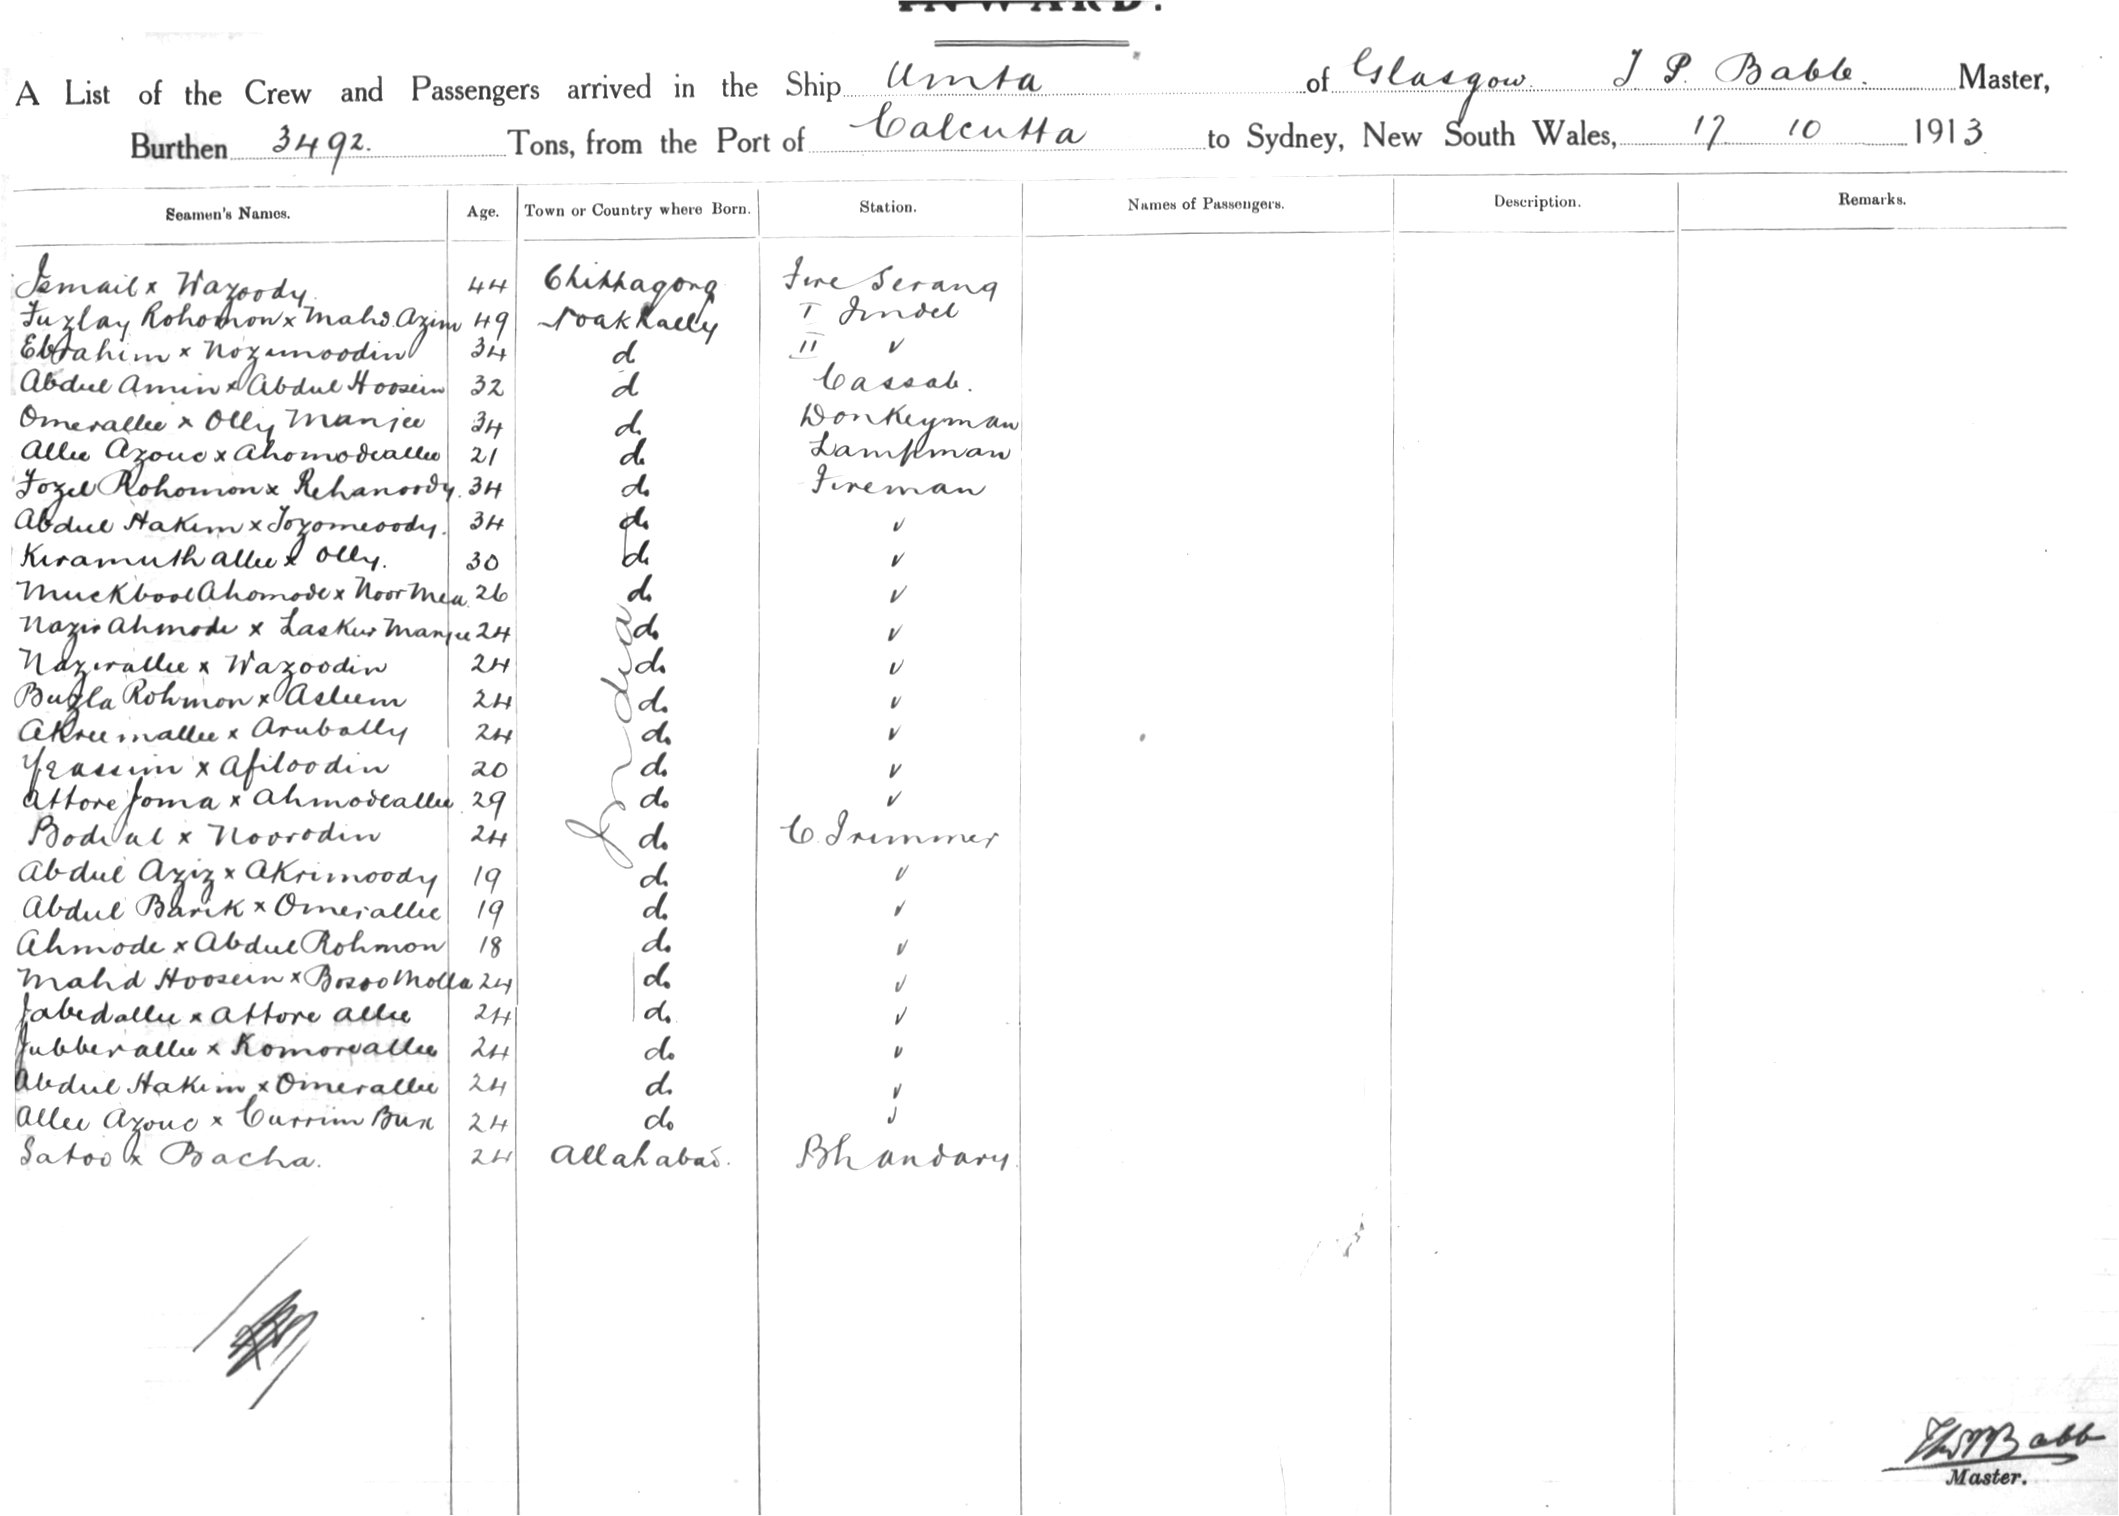 INWARD.
A List of the Crew and Passengers arrived in the Ship Umta of Glasgow. T P. Babb. Master,
Burthen 3492. Tons, from the Port of Calcutta to Sydney, New South Wales, 17 10 1913
Seamen's Names. Age. Town or Country where Born. Station. Names of Passengers. Description. Remarks.
Ismail x Wazoody 44 Chittagong Fire Serang
Fuzlay Rohomon x Mahd. Azim 49 Noakhally I Tindel
Ebrahim x Nozumoodin 34 d II v
Abdul Amin x Abdul Hoosein 32 d Cassab.
Omerallee x Olly Manjee 34 do Donkeyman
Allee Azouc x Ahomodeallee 21 do Lampman
Fozel Rohomon x Rehanoody. 34 do Fireman
Abdul Hakim x Tozomeoody. 34 do v
Keramuth allee x Olly. 30 do v
Muckbool Ahomode x Noor Mea 26 do v
Nazir Ahmode x Laskur Manjee 24 do v
Nazirallee x Wazoodin 24 do v
Buzla Rohmon x Asleem 24 do v
Akreemallee x Arubally 24 do v
Yeassim x Afiloodin 20 do v
Attore Joma x Ahmodeallee 29 do v
India
Bodiul x Noorodin 24 do C. Trimmer
Abdul Aziz x Akrimoody 19 do v
Abdul Barik x Omerallee 19 do v
Ahmode x Abdul Rohmon 18 do v
Mahd Hoosein x Bosoo Molla 24 do v
Jabedallee x Attore Allee 24 do v
Jubberallee x Komoreallee 24 do v
Abdul Hakim x Omerallee 24 do v
Allee Azouc x Currim Bux 24 do v
Satoo x Bacha. 24 Allahabad. Bhandary.
Babb
Master.